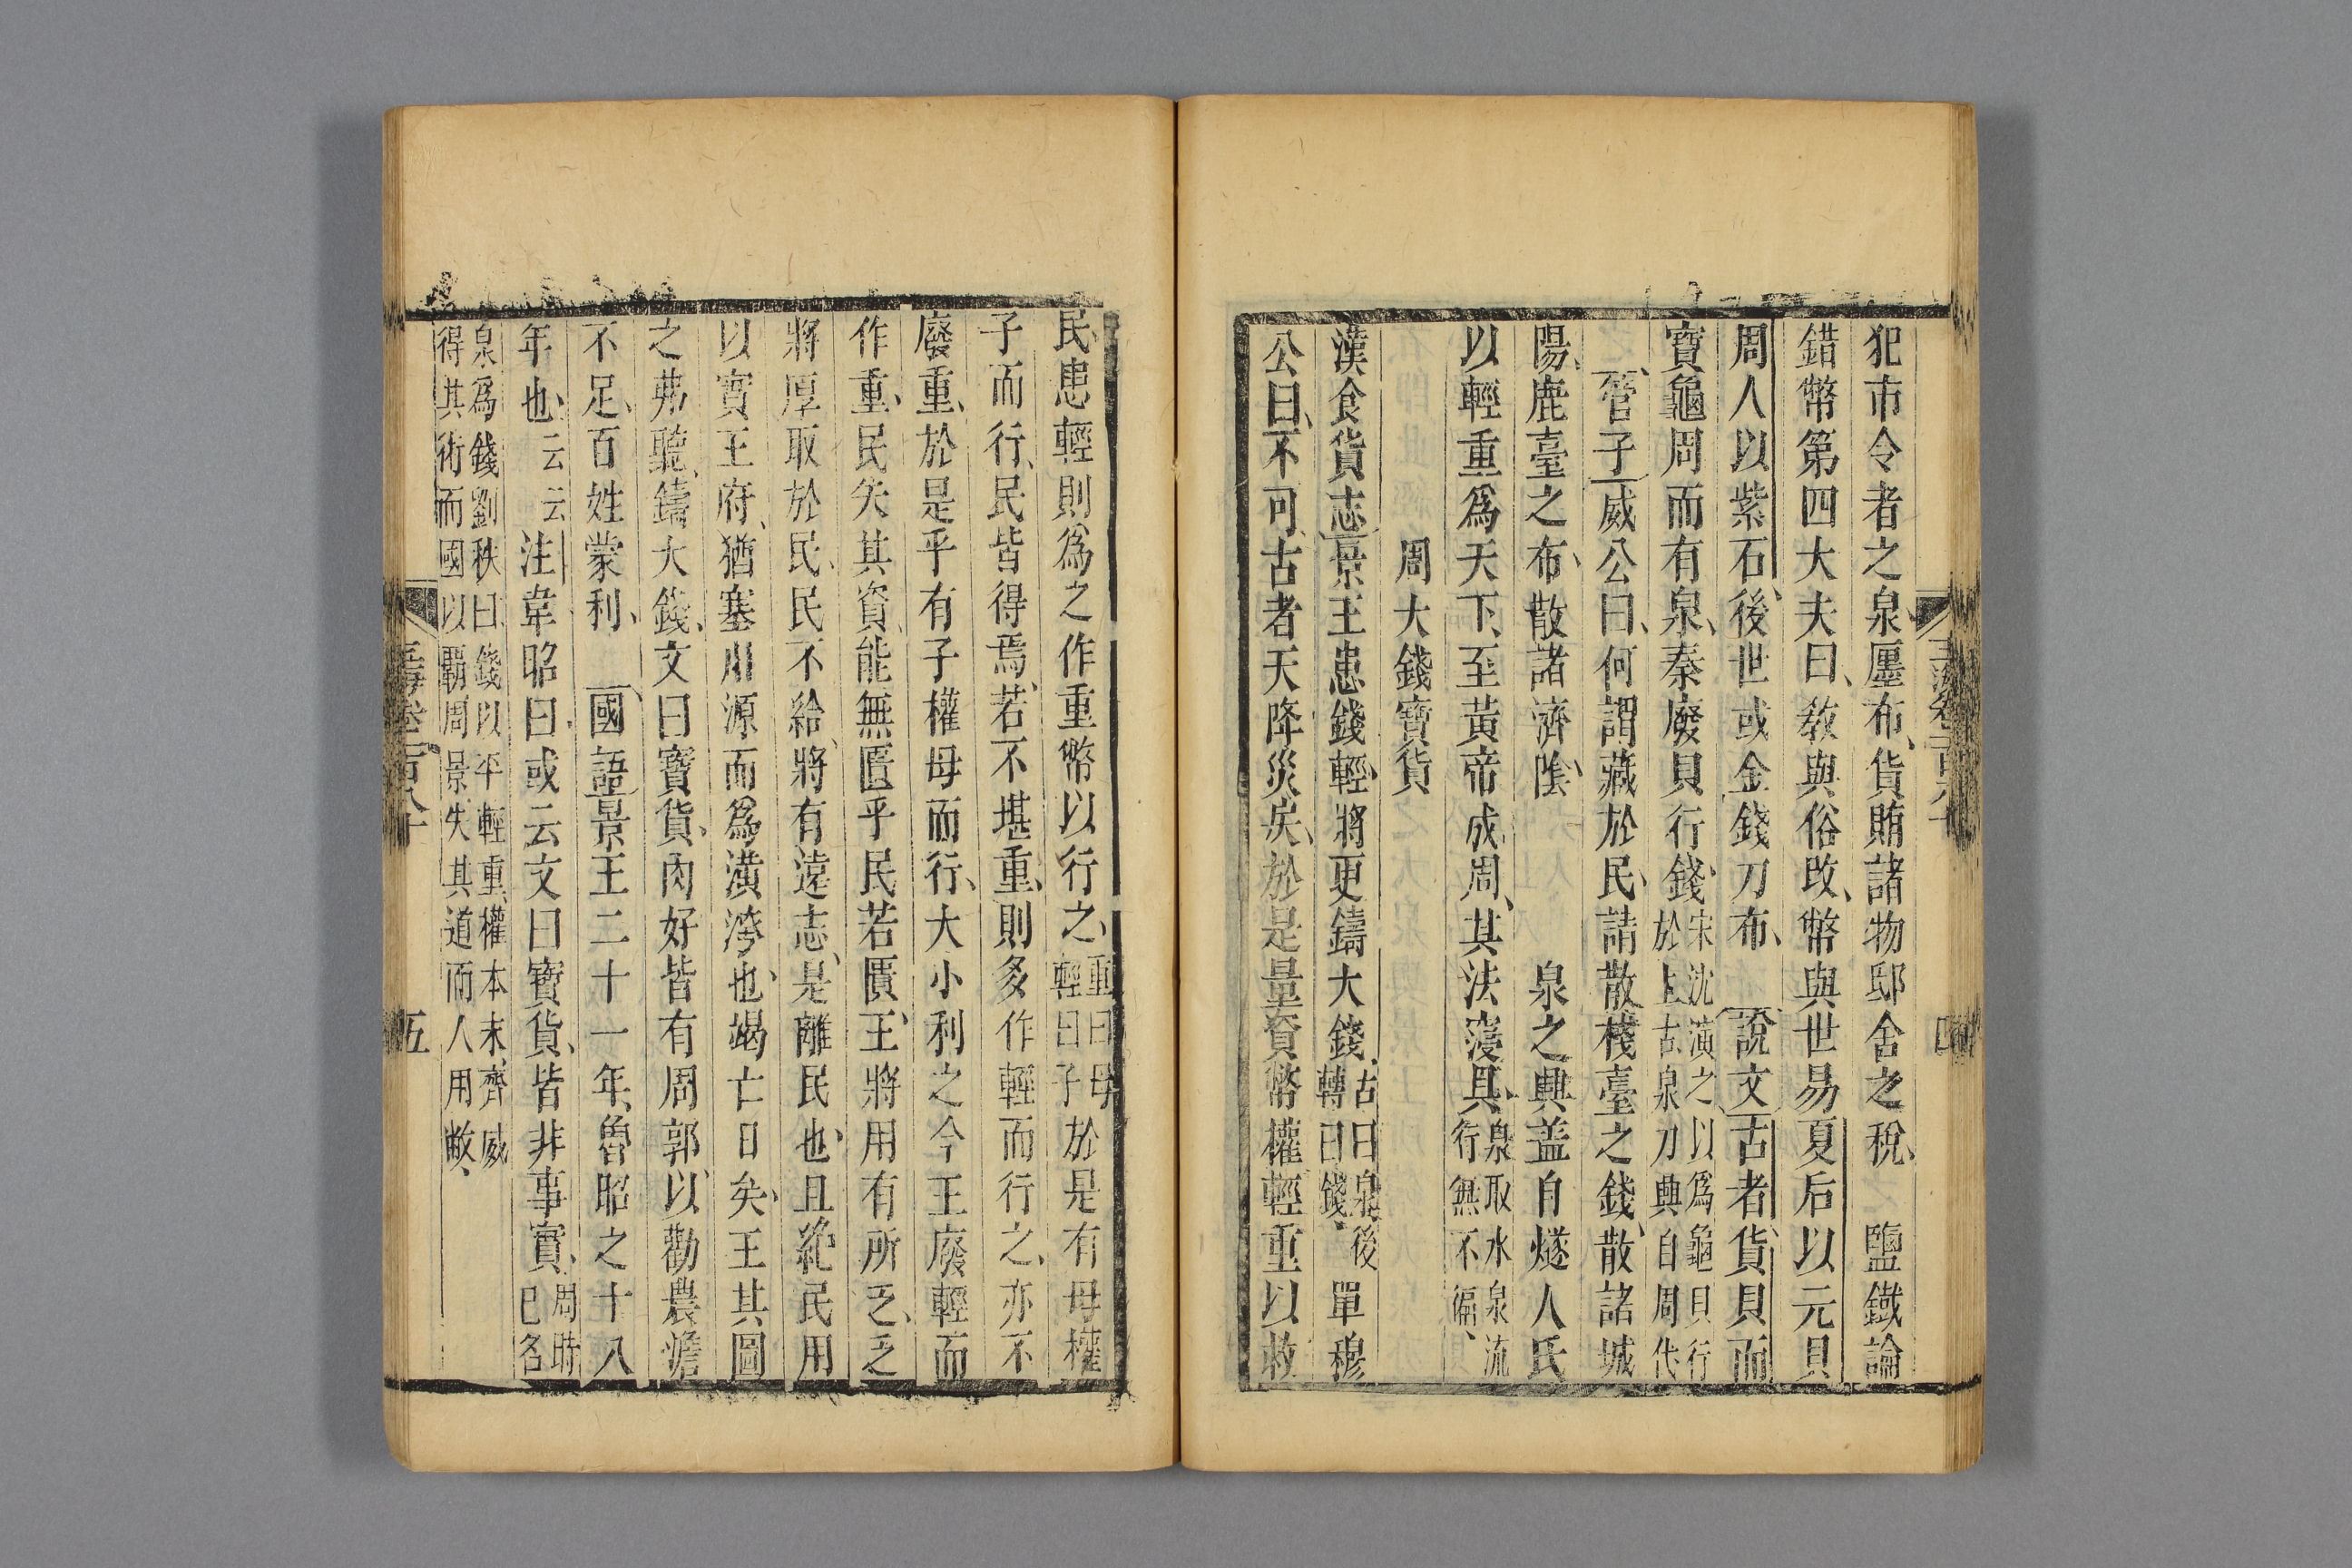 犯市令者之泉、廛布、貨賄諸物邸舍之稅、 鹽鐵論
錯幣第四大夫曰、教與俗改、幣與世易夏后以元貝
周人以紫石、後世或金錢刀布、 說文古者貨貝而
寶龜周而有泉、秦廢貝行錢、宋沈演之以爲龜貝行於上古泉刀興自周代
管子威公曰、何謂藏於民、請散棧臺之錢、散諸城
陽、鹿臺之布、散諸濟陰、 泉之興盖自燧人氏
以輕重爲天下、至黃帝成周、其法寖具、泉取水泉流行無不徧、
周大錢寶貨
漢食貨志景王患錢輕、將更鑄大錢、古曰泉後轉曰錢、單穆
公曰、不可、古者天降災戾、於是量資幣權輕重以救
民、患輕則爲之作重幣以行之、重曰母輕曰子於是有母權
子而行、民皆得焉、若不堪重、則多作輕而行之、亦不
廢重、於是乎有子權母而行、大小利之今王廢輕而
作重、民失其資、能無匱乎民若匱、王將用有所乏、乏
將厚取於民、民不給、將有遠志、是離民也、且絶民用
以實王府、猶塞川源而爲潢洿也、竭亡日矣、王其圖
之弗聽、鑄大錢、文曰寶貨、肉好皆有周郭、以勸農澹
不足、百姓蒙利、 國語景王二十一年、魯昭之十八
年也、云云注韋昭曰或云文曰寶貨、皆非事實、周時已名
泉爲錢劉秩曰、錢以平輕重、權本末、齊威得其術而國以霸周景失其道而人用敝、
玉海卷一百八十 四
玉海卷一百八十 五